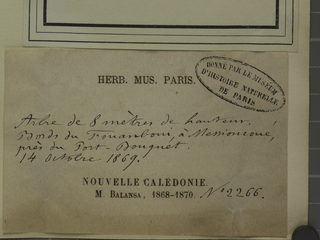 HERB. MUS. PARIS.
DONNÉ PAR LE MUSEUM
D'HISTOIRE NATURELLE
DE PARIS
Arbre de 8 mètres de hauteur.
Bords du à Messioncoué,
près du Port-Bouquet.
14 Octobre 1869.
NOUVELLE CALÉDONIE.
M. BALANSA, 1868-1870. N° 2266.